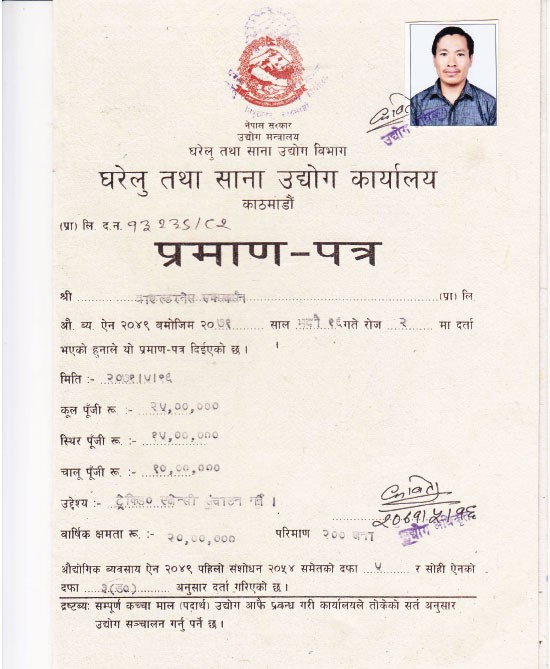 नेपाल सरकार
उद्योग मन्त्रालय
घरेलु तथा साना उद्योग विभाग
घरेलु तथा साना उद्योग कार्यालय
काठमाडौं
(प्रा) लि. द.न. १३२३६/८२
प्रमाण-पत्र
श्री (प्रा) लि
औ. व्य. ऐन २०४९ बमोजिम २०७१ साल भदौ १६ गते रोज २ मा दर्ता
भएको हुनाले यो प्रमाण-पत्र दिईएको छ ।
मिति :- २०७१।५।१६
कूल पूँजी रू. :- २५,००,०००
स्थिर पूँजी रू. :- १५,००,०००
चालू पूँजी रू. :- १०,००,०००
उद्देश्य :- ट्रेकिङ एजेन्सी संचालन गर्ने ।
वार्षिक क्षमता रू. :- २०,००,००० परिमाण २०० जना
२०७१।५।१६
औद्योगिक व्यवसाय ऐन २०४९ पहिलो संशोधन २०५४ समेतको दफा ५ र सोही ऐनको
दफा अनुसार दर्ता गरिएको छ ।
द्रष्टव्य: सम्पूर्ण कच्चा माल (पदार्थ) उद्योग आफै प्रवन्ध गरी कार्यालयले तोकेको सर्त अनुसार
उद्योग सञ्चालन गर्नु पर्ने छ ।